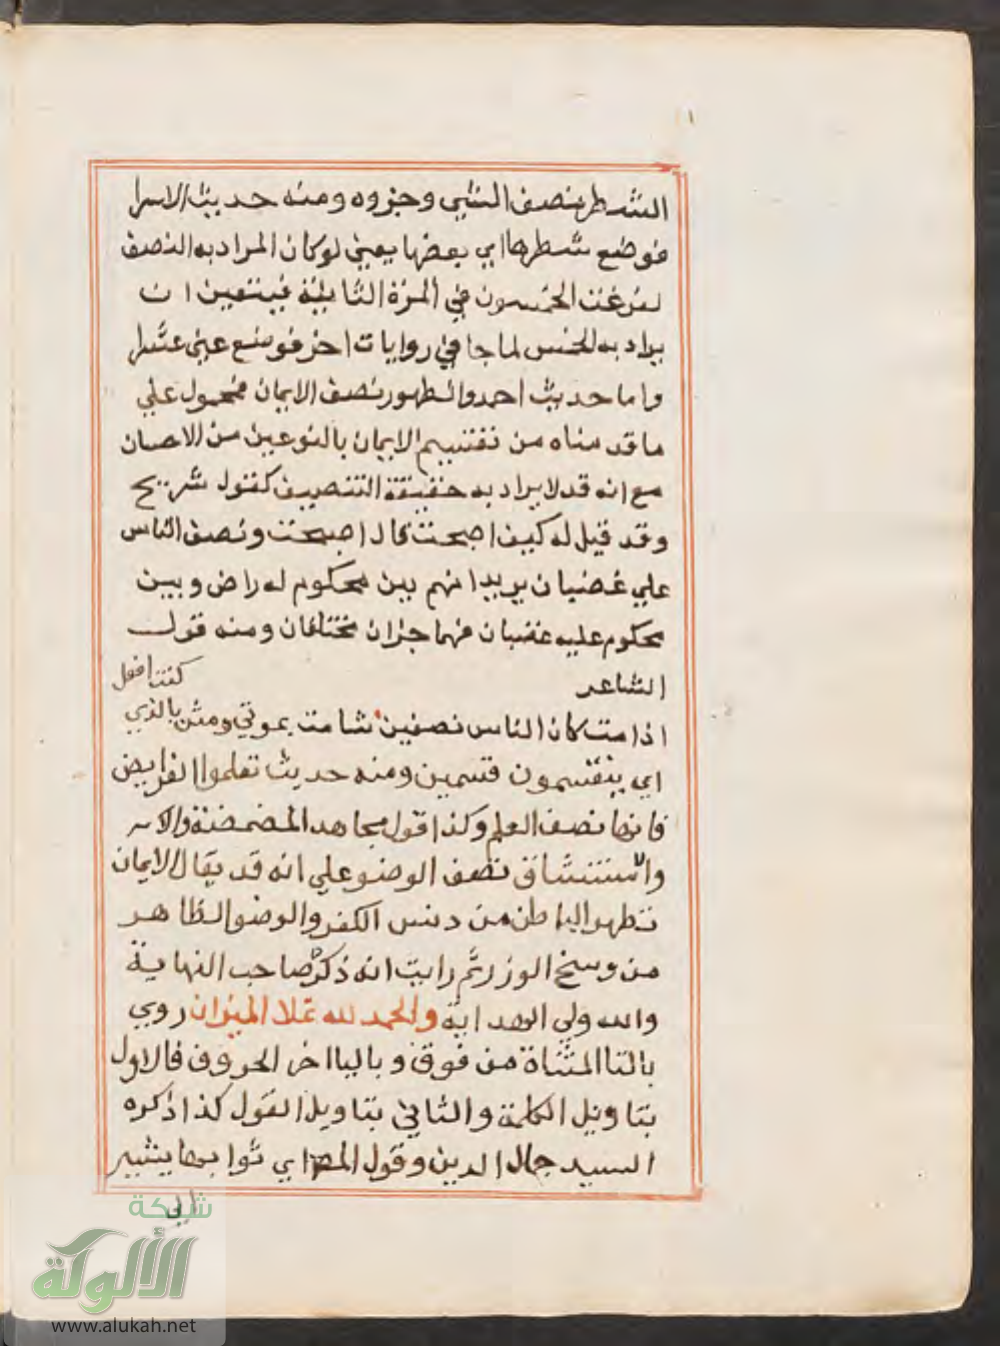 الشطر نصف الشي وجزوه ومنه حديث الاسرا
فوضع شطرها اي بعضها يعني لو كان المراد به النصف
لفرغت الخمسون في المرة الثانية فيتعين ان
يراد به الخمس لما جا في روايات اخر فوضع عني عشرا
واما حديث احمد والطهور نصف الايمان فمحمول علي
ما قدمناه من تقسيم الايمان بالنوعين من الاحسان
مع انه قد لا يراد به حقيقة التنصيف كقول شريح
وقد قيل له كيف اصبحت قال اصبحت ونصف الناس
علي غضبان يريد انهم بين محكوم له راض وبين
محكوم عليه غضبان فهما حزبان مختلفان ومنه قول
الشاعر
اذا مت كان الناس نصفين شامت بموتي ومثن بالذي كنت افعل
اي ينقسمون قسمين ومنه حديث تعلموا الفرايض
فانها نصف العلم وكذا قول مجاهد المضمضة والاس
والاستنشاق نصف الوضو علي انه قد يقال الايمان
تطهر الباطن من دنس الكفر والوضو الظاهر
من وسخ الوزر ثم رايت انه ذكره صاحب النهاية
والله ولي الهداية والحمد لله تملا الميزان روي
بالتا المثناة من فوق وباليا اخر الحروف فالاول
بتاويل الكلمة والثاني بتاويل القول كذا ذكره
السيد جمال الدين وقول المص اي ثوابها يشير
الي
شبكة
الألوكة
www.alukah.net